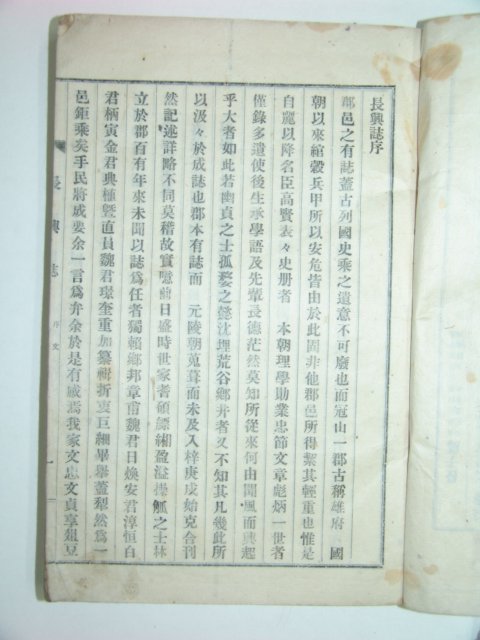 長興誌序
郡邑之有誌蓋古列國史乘之遺意不可廢也而冠山一郡古稱雄府 國
朝以來綰轂兵甲所以安危皆由於此固非他郡邑所得絜其輕重也惟是
自麗以降名臣高賢表々史册者 本朝理學勛業忠節文章彪炳一世者
僅錄多遺使後生承學語及先輩長德茫然莫知所從來何由聞風而興起
乎大者如此若幽貞之士孤嫠之懿沈埋荒谷鄉井者又不知其凡幾此所
以汲々於成誌也郡本有誌而 元陵朝蒐葺而未及入梓庚戌始克合刊
然記述詳略不同莫稽故實噫前日盛時世家耆碩縹緗盈溢操觚之士林
立於郡百有年來未聞以誌爲任者獨賴鄉邦章甫魏君日煥安君淳恒白
君柄寅金君典植曁直員魏君璟奎重加纂輯折衷巨細畢擧蓋犁然爲一
邑鉅乘矣手民將成要余一言爲弁余於是有感焉我家文忠文貞享俎豆
長興誌
序文
一